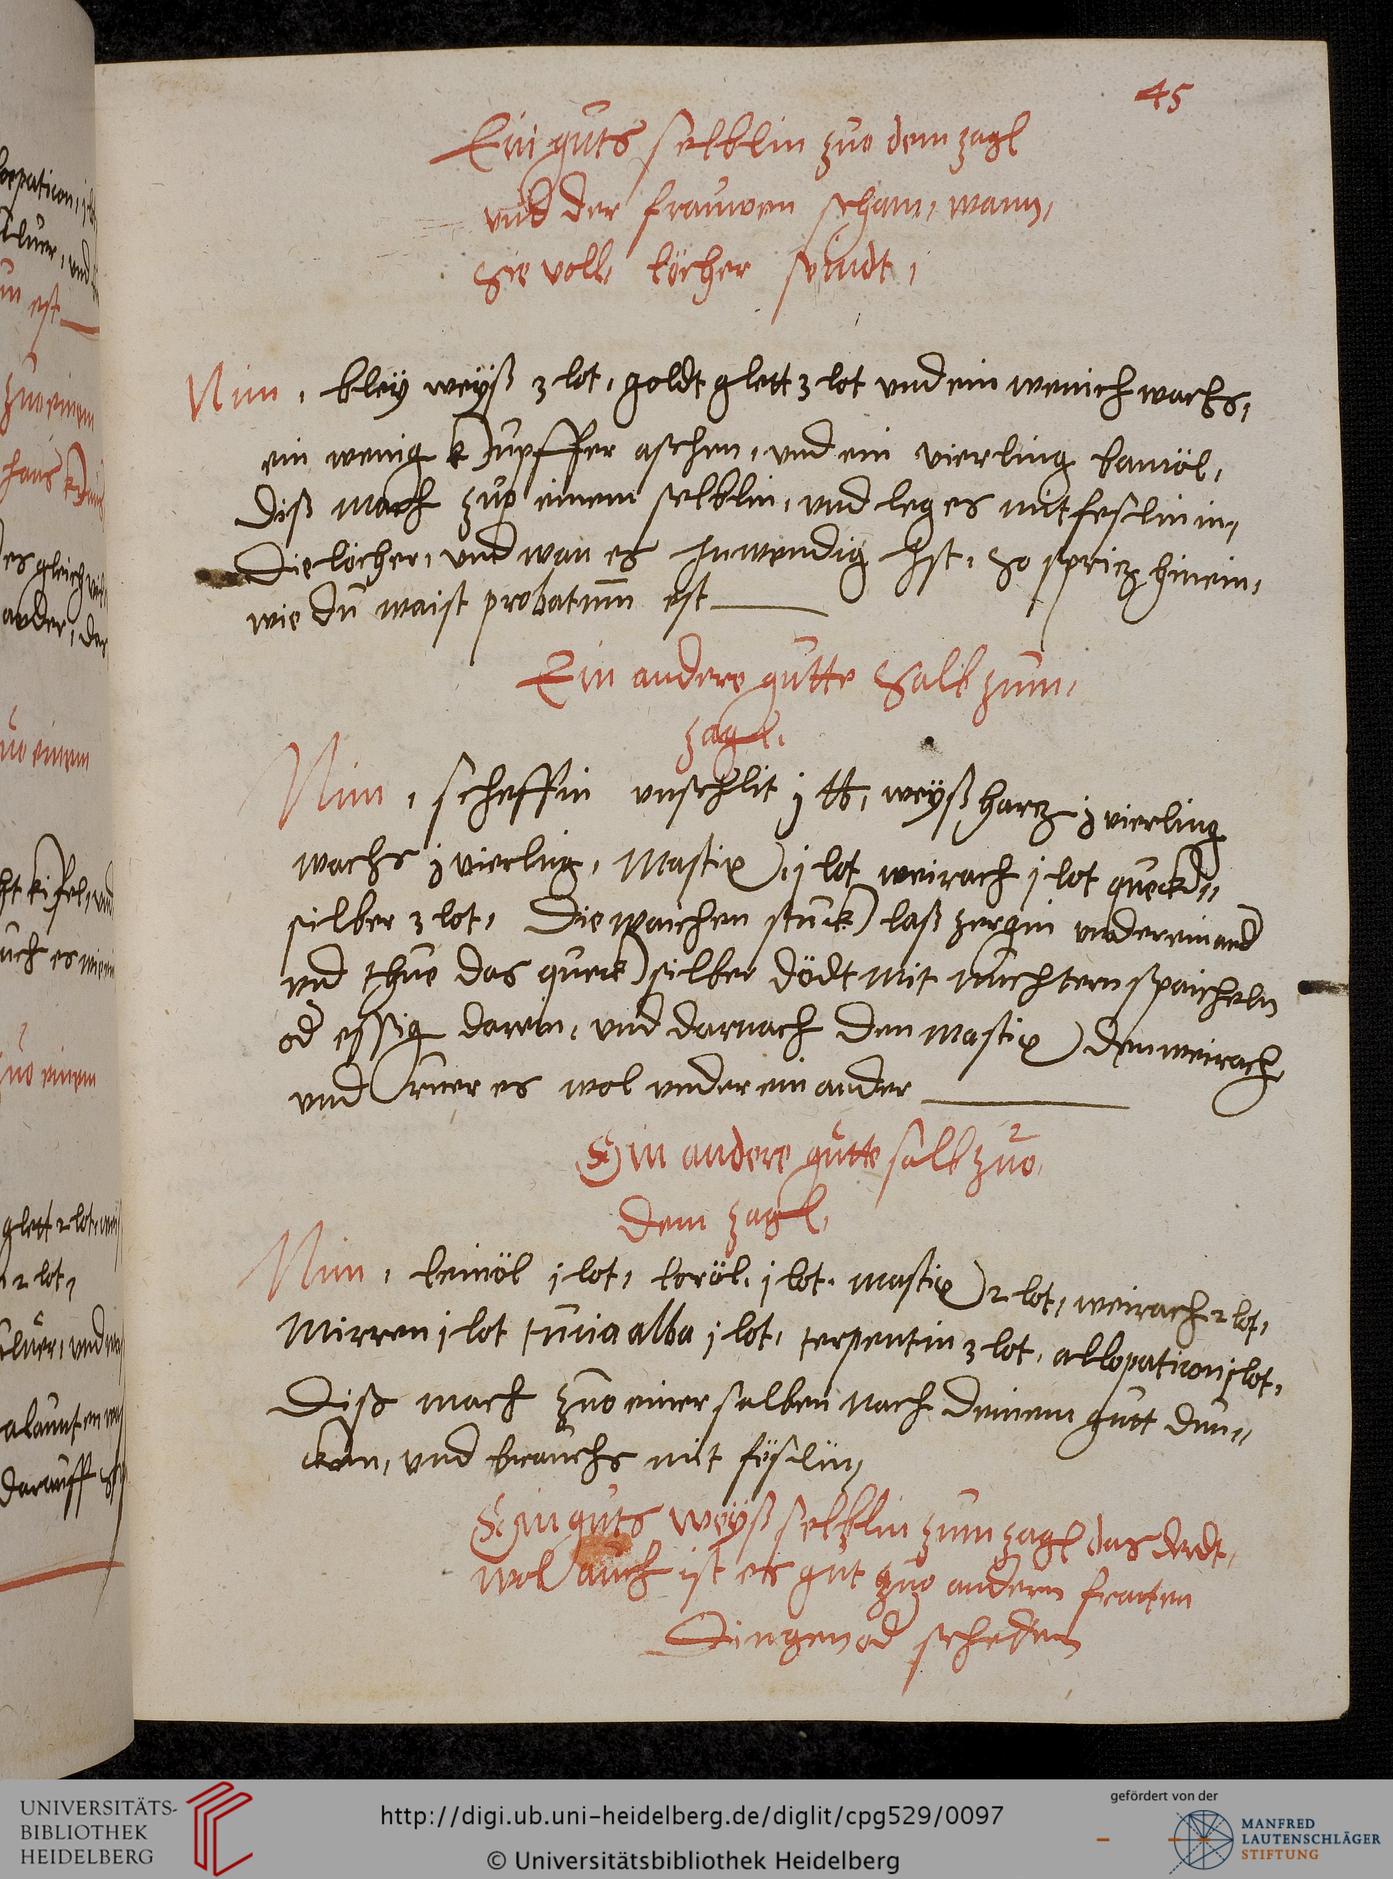 45
Ein guts selblin zuo dem zagl
vnd der frauwen scham, wann,
Sie voll löcher seindt,
Nim, bleÿ weÿß 3 lot, goldt glett 3 lot vnd ein wenich wachs,
ein wenig kupffer aschen, vnd ein vierling bamöl,
Diß mach zuo einem selblin, vnd leg es mit feslin in,
Die löcher, vnd wan es Inwendig Ist, So spricz hinein,
wie du waist probatum est
Ein andere gutte Salb zum,
zagl.
Nim, scheffin vnschlit j ℔, weÿß harcz j vierling
wachs j vierling, Mastix j lot weirach j lot queck,,
silber 3 lot, Die waichen stuck laß zergin vndereinand
vnd thuo das queck silber dödt mit nuchtern spaicheln
od essig darein, vnd darnach den mastix den weirach
vnd ruer es wol vnder ein ander
Ein andere gutte salb zuo,
dem zagl,
Nim, leinöl j lot, loröl. j lot. mastix 2 lot, weirach 2 lot,
Mirren j lot tucia alba j lot, terpentin 3 lot, allopaticon j lot,
Diß mach zuo einer salben nach deinem gutt dun,,
cken, vnd brauchs mit feslin,
Ein guts weÿß selblin zum zagl das
wol auch ist es gut zuo andern
Dingen od scheden
loepation,
vnd
un est
zuo einem
es gleich
ander, der
zuo einem
zuo einem
glett 2 lot,
2 lot,
darauff
UNIVERSITÄTS-
BIBLIOTHEK
HEIDELBERG
http://digi.ub.uni-heidelberg.de/diglit/cpg529/0097
© Universitätsbibliothek Heidelberg
gefördert von der
MANFRED
LAUTENSCHLÄGER
STIFTUNG